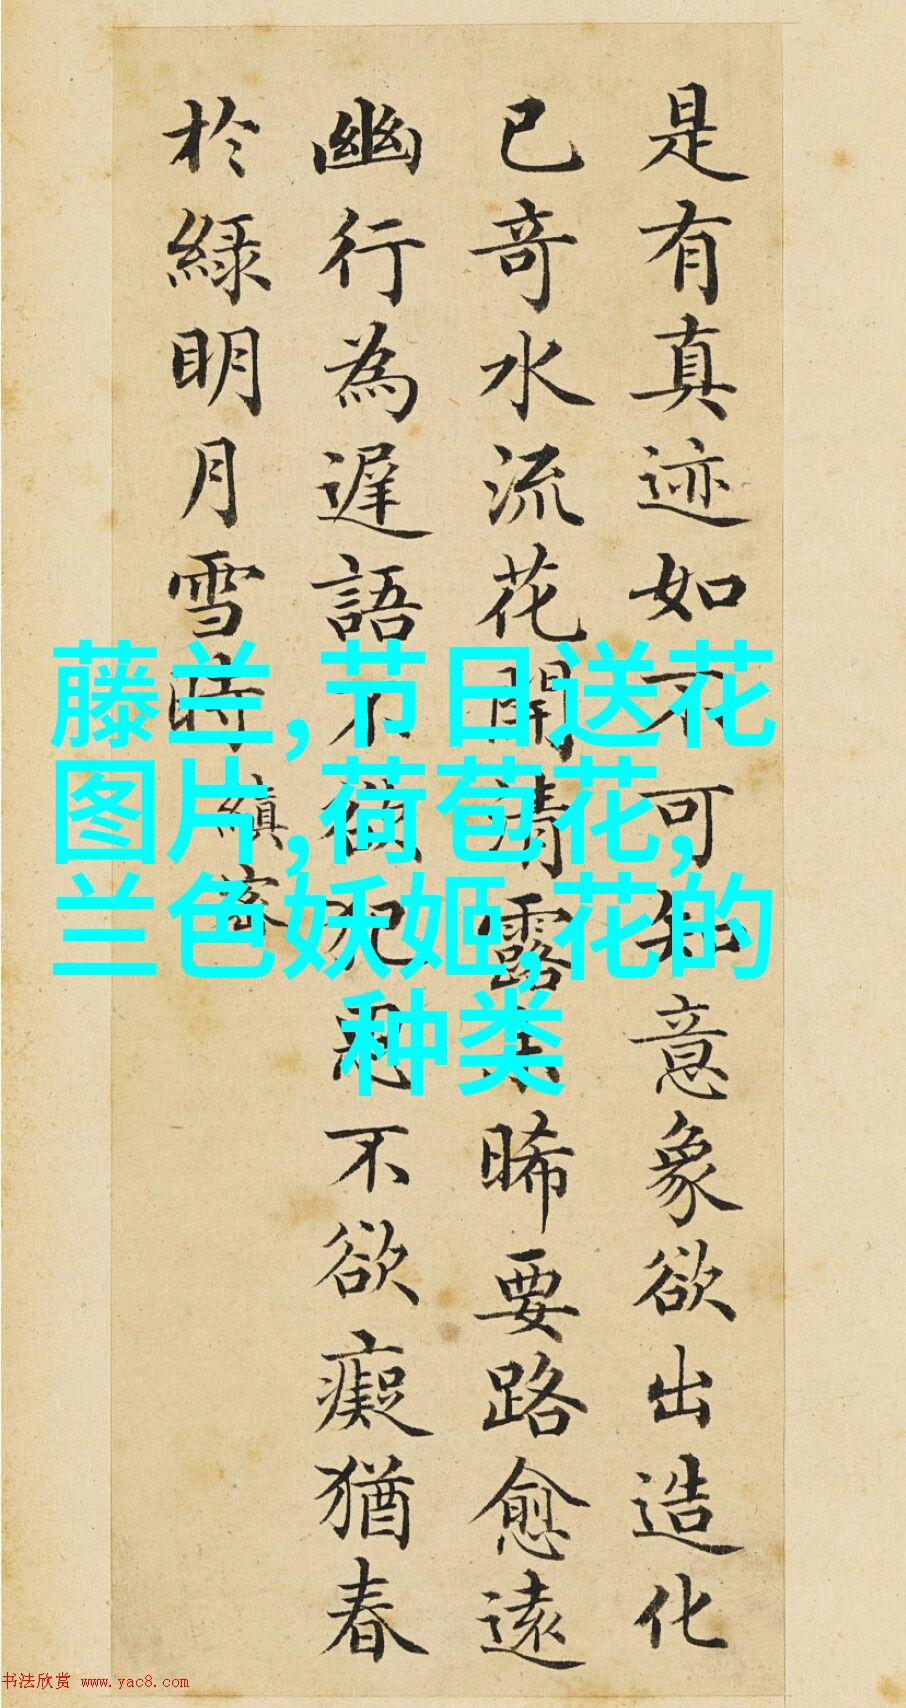 是有真迹如不可知意象欲出造化
已竒水流花開清露未晞要路愈遠
幽行為遲語不欲犯思不欲癡猶春
於綠明月雪時
縝密
藤兰,节日送花
图片,荷苞花,
兰色妖姬,花的
种类
书法欣赏 www.yac8.com